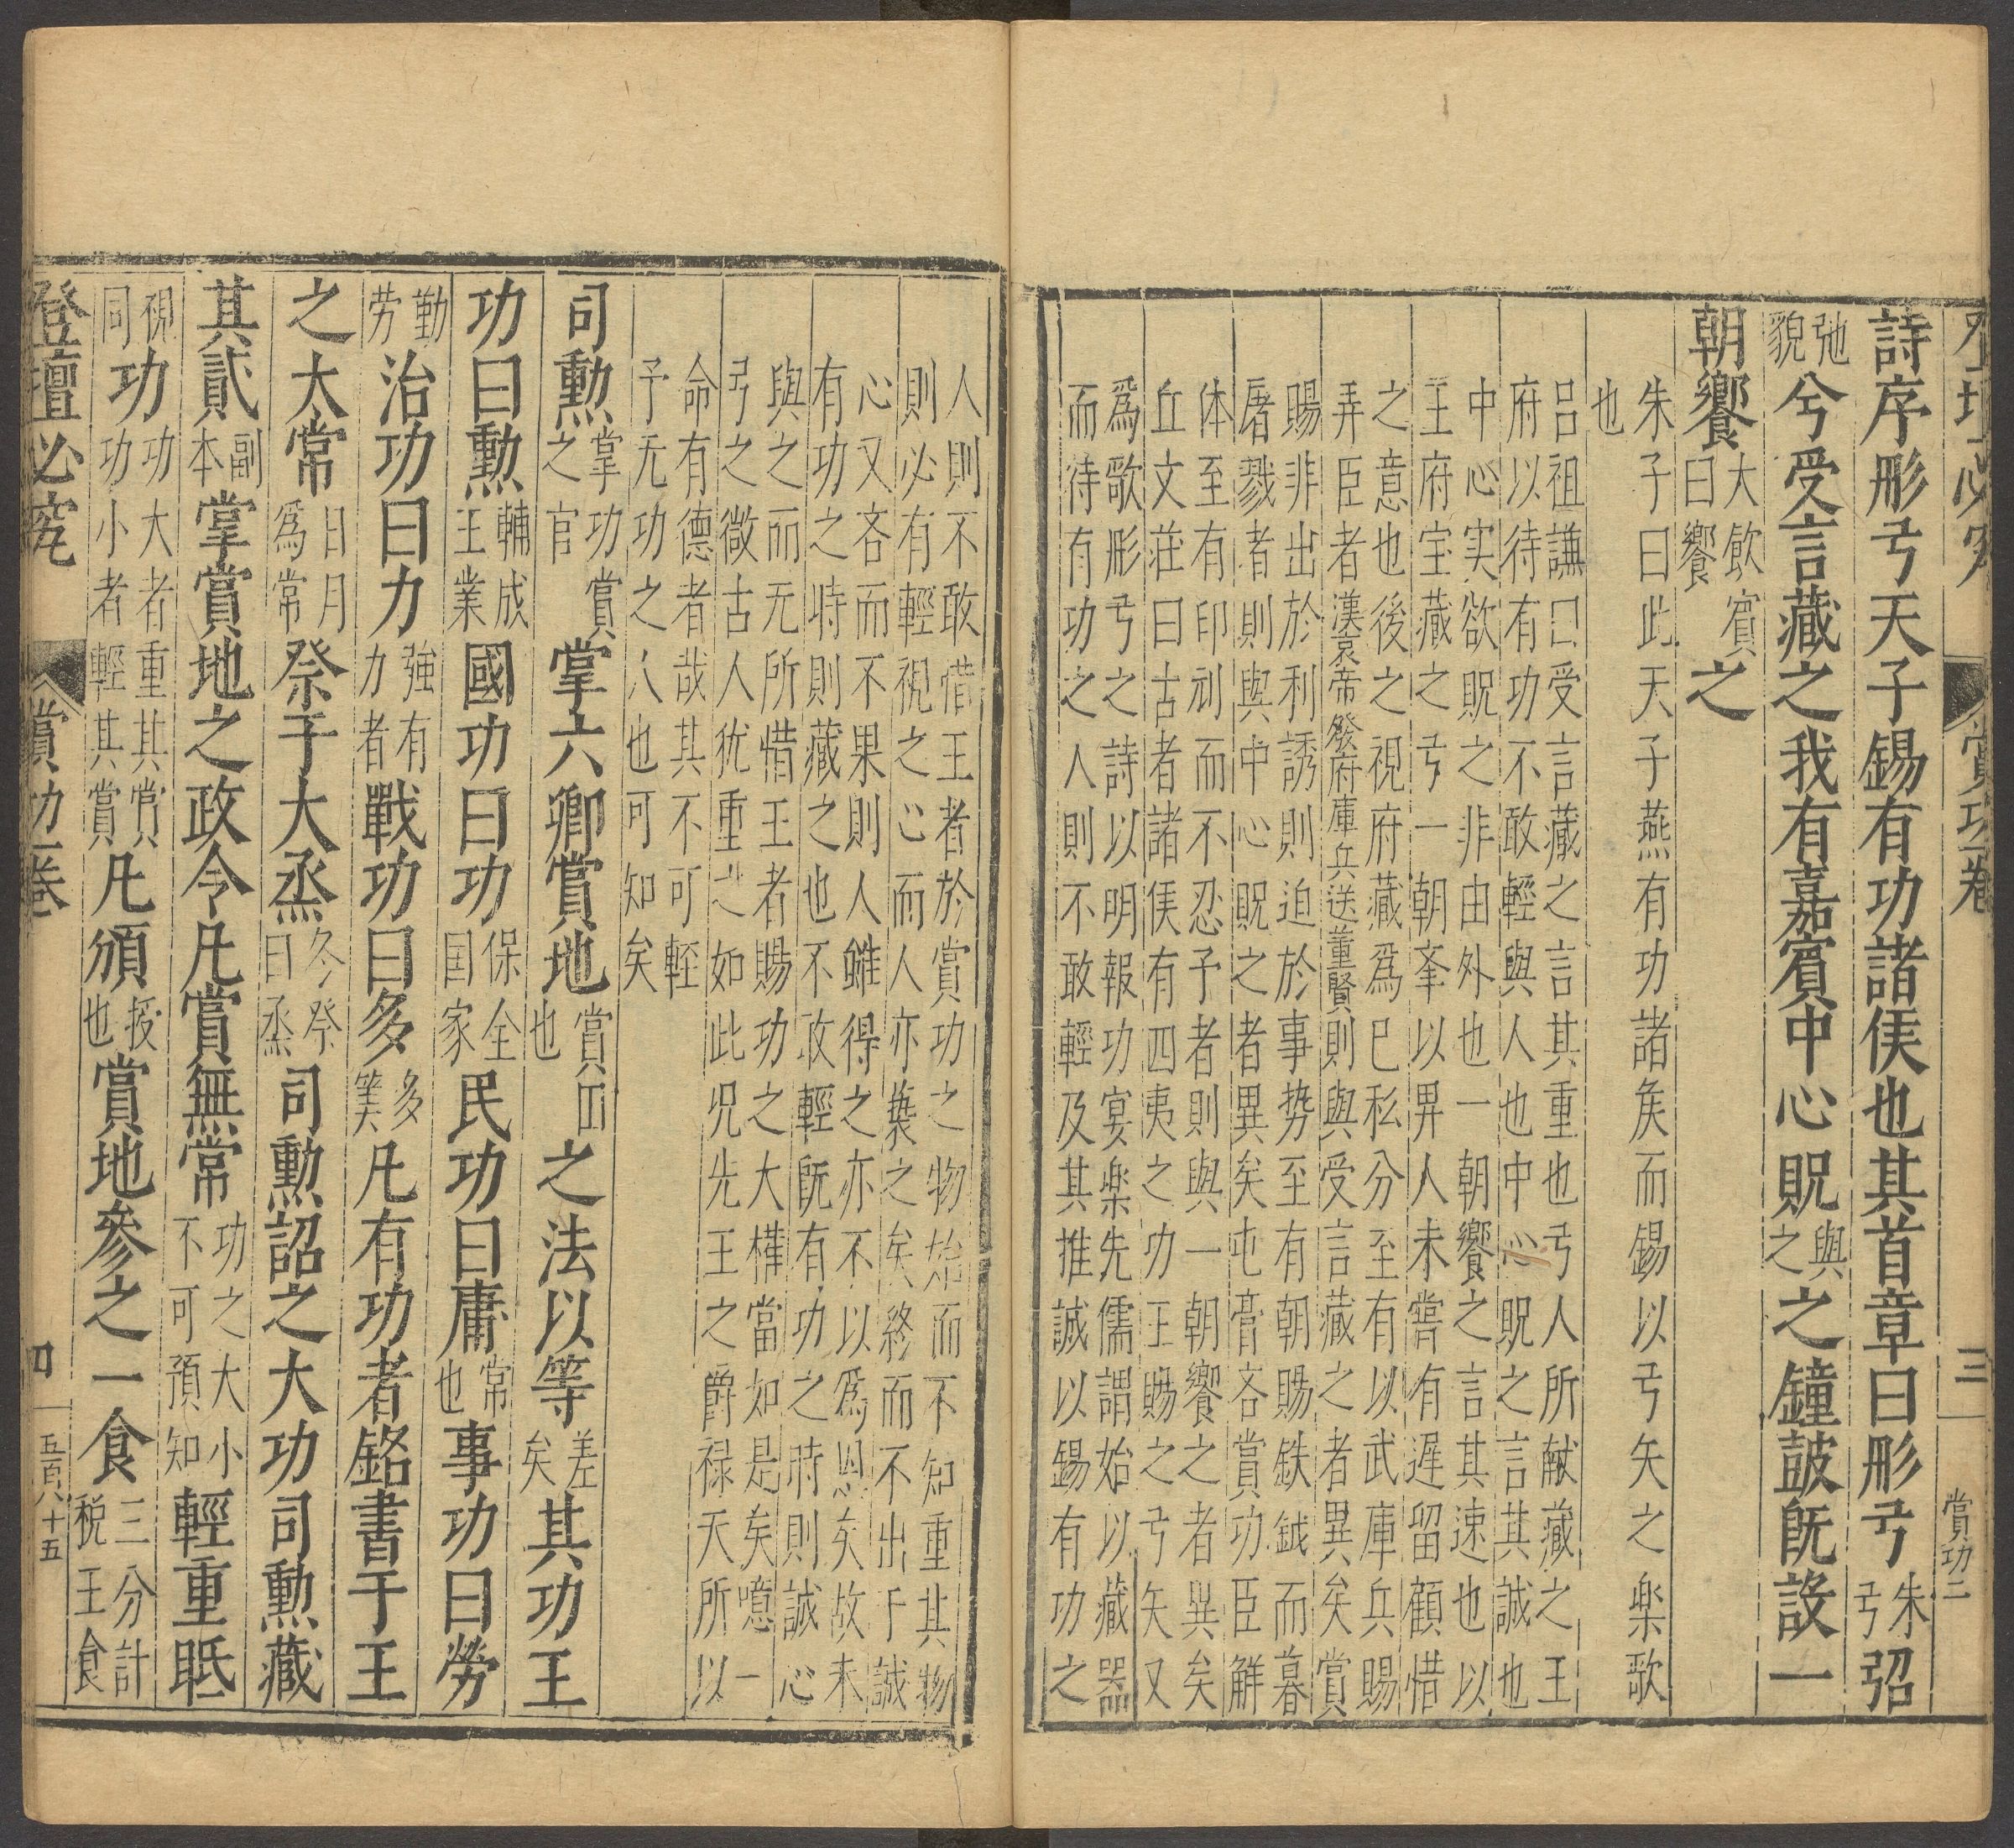 登壇必究 賞功二卷 三 賞功二
詩序彤弓天子錫有功諸侯也其首章曰彤弓朱弓弨
弛貌兮受言藏之我有嘉賓中心貺與之之鐘鼓旣設一
朝饗大飲賓曰饗之
朱子曰此天子燕有功諸矦而錫以弓矢之楽歌
也
呂祖謙曰受言藏之言其重也弓人所献藏之王
府以待有功不敢輕與人也中心貺之言其誠也
中心实欲貺之非由外也一朝饗之言其速也以
王府宝藏之弓一朝夆以畀人未嘗有遲留顧惜
之意也後之視府藏爲巳私分至有以武庫兵賜
弄臣者漢哀帝發府庫兵送董賢則與受言藏之者異矣賞
賜非出於利誘則迫於事势至有朝賜鉄鉞而暮
屠戮者則與中心貺之者異矣屯膏吝賞功臣解
体至有印刓而不忍予者則與一朝饗之者異矣
丘文莊曰古者諸侯有四夷之功王賜之弓矢又
爲歌彤弓之詩以明報功宴楽先儒謂始以藏器
而待有功之人則不敢輕及其推誠以錫有功之
人則不敢惜王者於賞功之物始而不知重其物
則必有輕視之心而人亦䙝之矣終而不出于誠
心又吝而不果則人雖得之亦不以爲恩矣故未
有功之時則藏之也不敢輕旣有功之時則誠心
與之而无所惜王者賜功之大権當如是矣噫一
弓之微古人犹重之如此况先王之爵禄天所以
命有德者哉其不可輕
予无功之人也可知矣
司勲掌功賞之官掌六卿賞地賞田也之法以等差矣其功王
功曰勲輔成王業國功曰功保全国家民功曰庸常也事功曰勞
勤劳治功曰力強有力者戰功曰多多筭凡有功者銘書于王
之大常日月爲常祭于大烝冬祭曰烝司勲詔之大功司勲藏
其貳副本掌賞地之政令凡賞無常功之大小不可預知輕重眡
視同功功大者重其賞功小者輕其賞凡頒授也賞地參之一食三分計税王食
登壇必究 賞功二卷 四 五百八十五